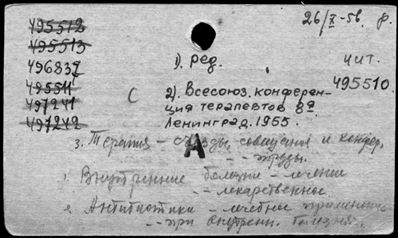 26/X-56. р.
495512
495513
1) ред.
чит.
496837
495510.
495511
С
2). Всесоюз. конферен-
497241
ция терапевтов 8я
497242
Ленинград. 1955.
3. Терапия - съезды, совещания и конфер.
- - труды.
А
1. Внутренние болезни - лечение
- - лекарственное
2. Антибиотики - лечебное применение
- - при внутрен. болезнях.